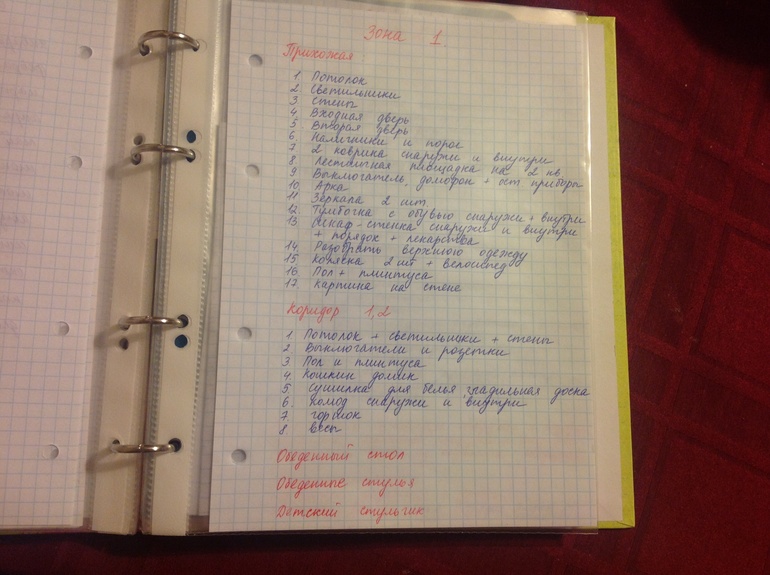 Зона 1.
Прихожая
1 Потолок
2 Светильники
3 Стены
4 Входная дверь
5 Вторая дверь
6 Наличники и порог
7 2 коврика снаружи и внутри
8 Лестничная площадка на 2 кв
9 Выключатель, домофон + ост приборы
10 Арка
11 Зеркала 2 шт
12. Тумбочка с обувью снаружи + внутри
13. Шкаф-стенка снаружи и внутри
+ порядок + лекарства
14. Разобрать верхнюю одежду
15 Коляска 2 шт + велосипед
16 Пол + плинтуса
17. Картина на стене
Коридор 1,2
1 Потолок + светильники + стены
2 Выключатели и розетки
3 Пол и плинтуса
4. Кошкин домик
5. Сушилка для белья, гладильная доска
6. Комод снаружи и внутри
7. горшок
8 весы
Обеденный стол
Обеденные стулья
Детский стульчик